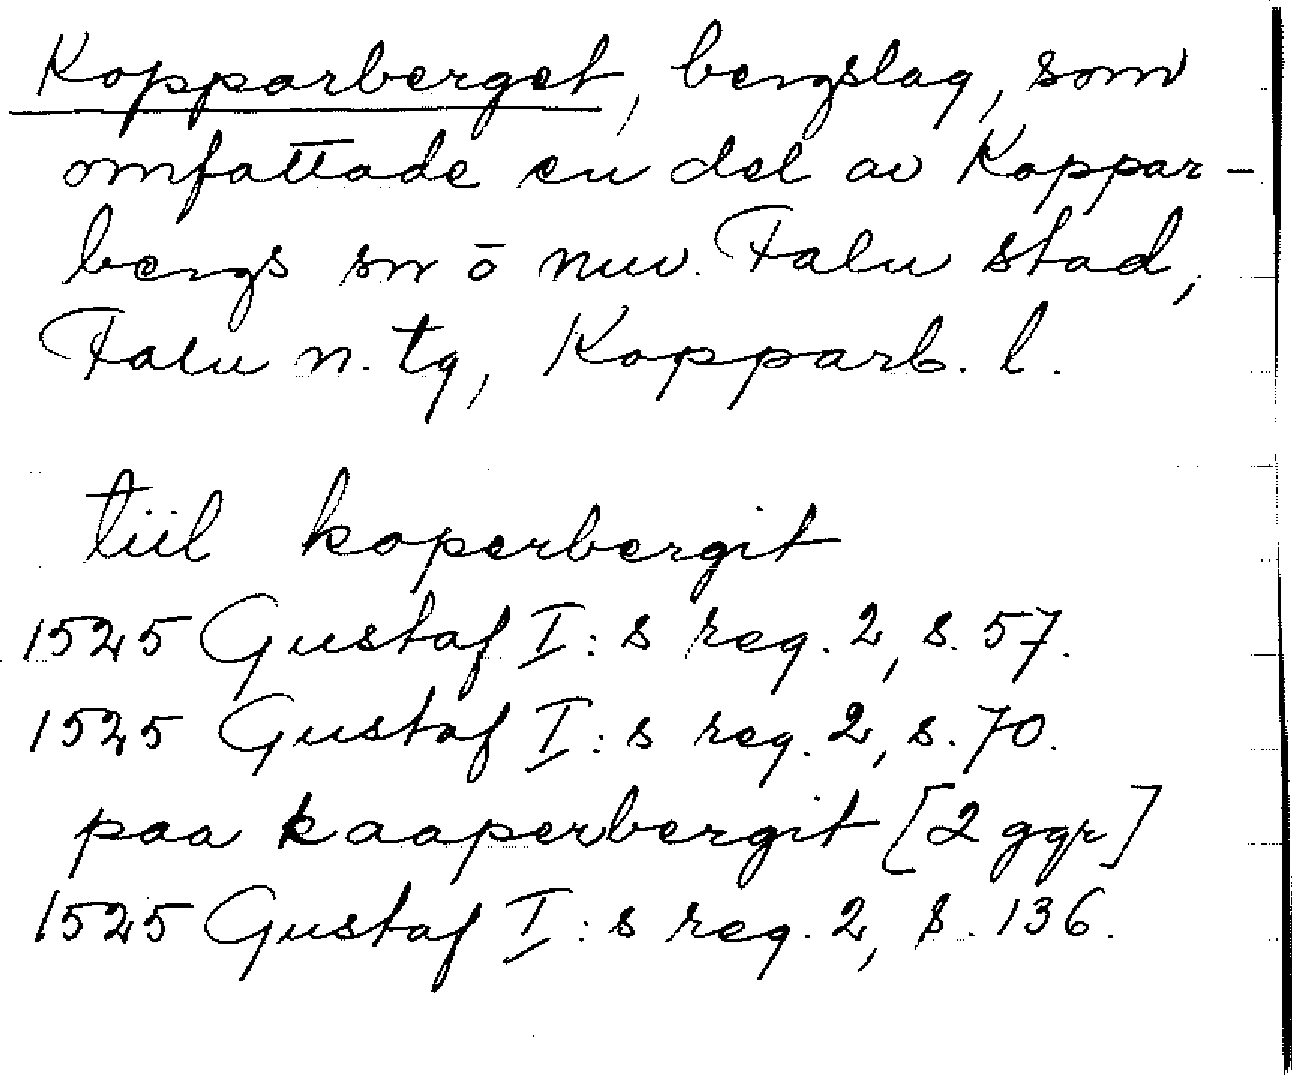 Kopparberget, bergslag, som
omfattade en del av Koppar-
bergs sn ō nuv. Falu stad,
Falu n. tg, Kopparb. l.
tiil koperbergit
1525 Gustaf I:s reg. 2, s. 57.
1525 Gustaf I:s reg. 2, s. 70.
paa kaaperbergit [2 ggr]
1525 Gustaf I:s reg. 2, s. 136.